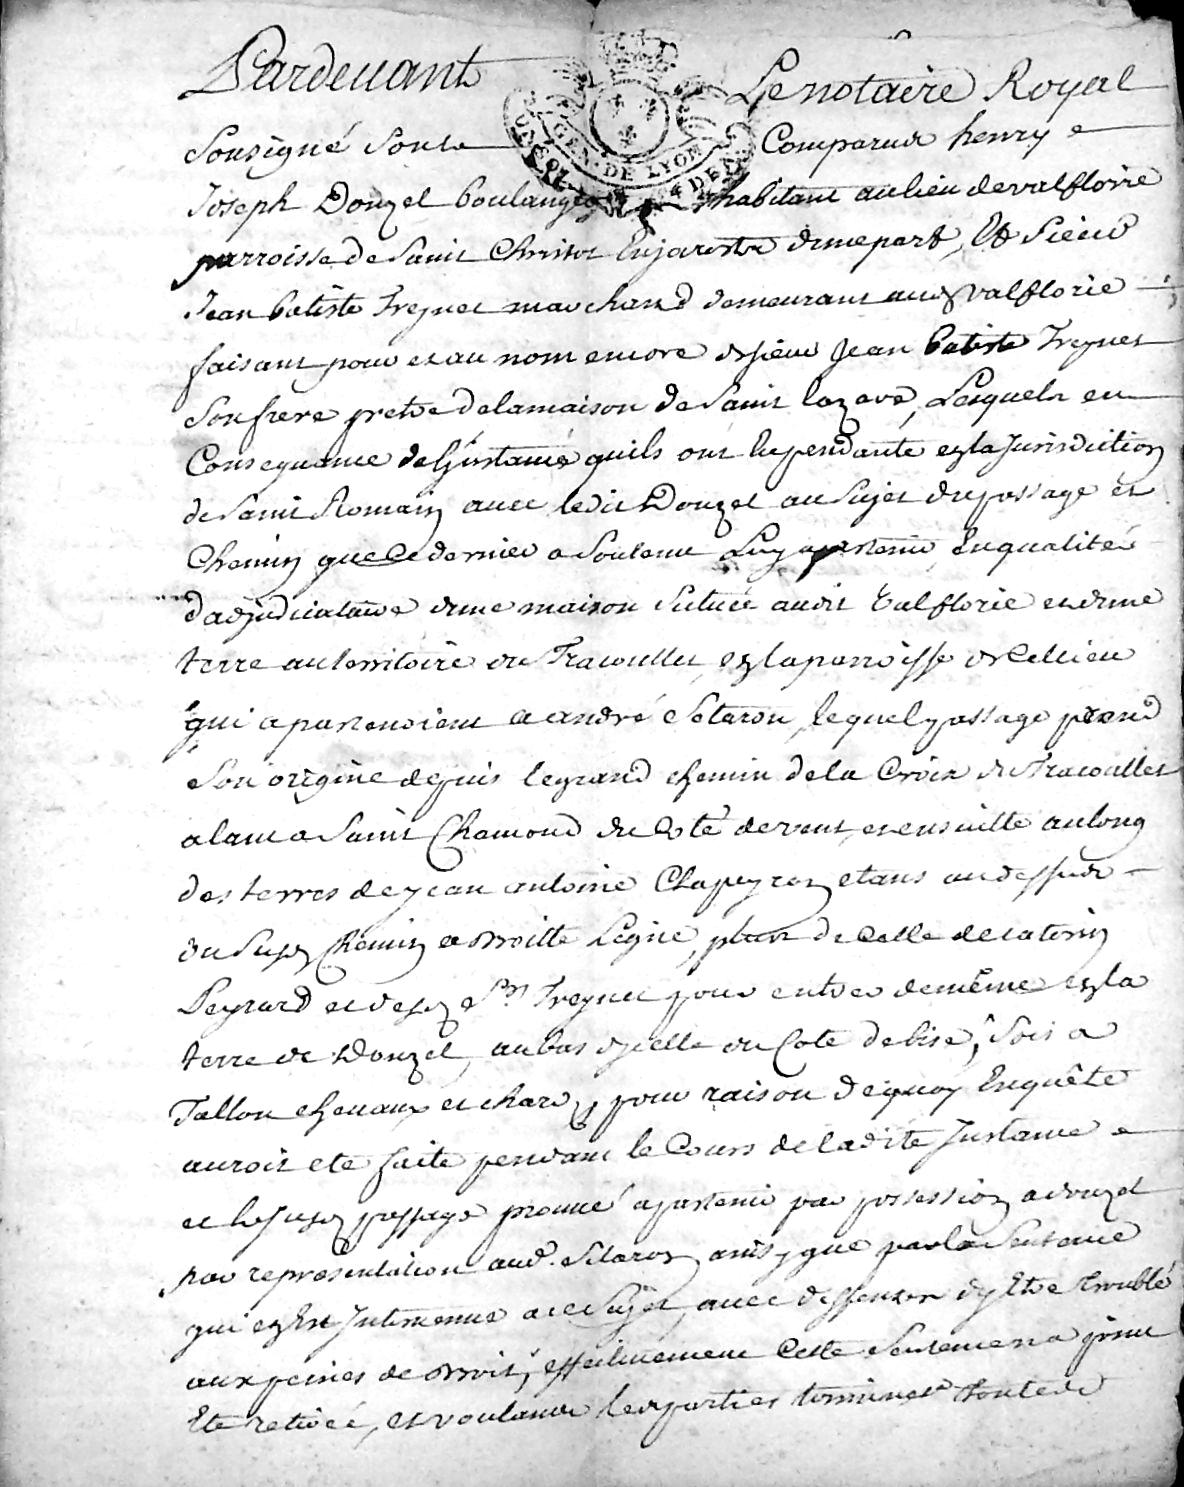 Pardevant Le notaire Royal
Sousigné sont Comparus henry
Joseph Douzel boulanger habitant au lieu de valfloirie
parroisse de Saint Christot En jarest d'une part, Et Sieur
Jean batiste Treynet marchand demeurant aud. valflorie
faisant pour et au nom encore de sieur Jean batiste Treynet
Son frere pretre de la maison de Saint lazare, Lesquels en
Consequance de l'instance quils ont eu pendante en la Jurisdiction
de Saint Romain avec ledit Douzel au Sujet du passage et
Chemin que Ce dernier a Soutenu Luy apartenir En qualité
d'adjudicataire d'une maison Scituée audit valflorie et d'une
terre au territoire du Tracoullet, en la parroisse de Cellieu
qui apartenoient a andré Setaron, lequel passage prend
Son origine depuis le grand chemin de la Croix du Tracoullet
a lant a Saint Chamond du Coté de vent, et ensuitte au long
des terres de jean antoine Chapeyron etans au dessus
du Susd. Chemin a droitte Ligne, plus de Celle de catirin
Peyrard et desd. Srs Treynet pour entrer de même en la
terre de Douzel, au bas d'icelle du Coté de bise, Soit a
Tallon chevaux et chard, pour raison de quoy Enquête
auroit eté faite pendant le Cours de la dite Instance
et le Susd. passage prouvé apartenir par possession a douzel
par representation aud. Setaron, ainsy que par la Sentence
qui en Est Intervenue a ce Sujet, avec deffenses d'y Etre troublé
aux peines de droit, effectivement Cette Sentence n'a point
Eté retirée, et voulant les parties terminer toutes